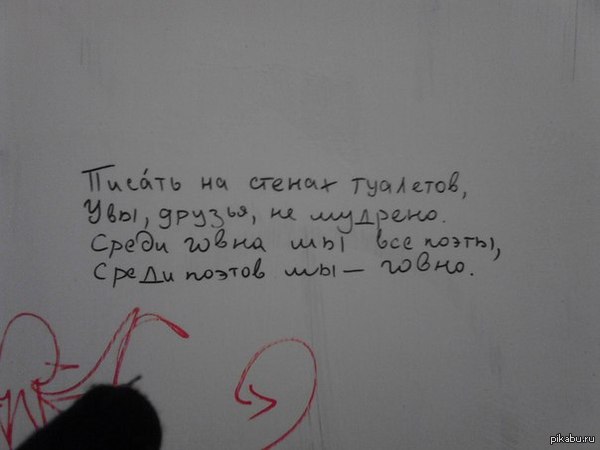 Писа́ть на стенах туалетов,
Увы, друзья, не мудрено.
Среди говна мы все поэты,
Среди поэтов мы — говно.
pikabu.ru